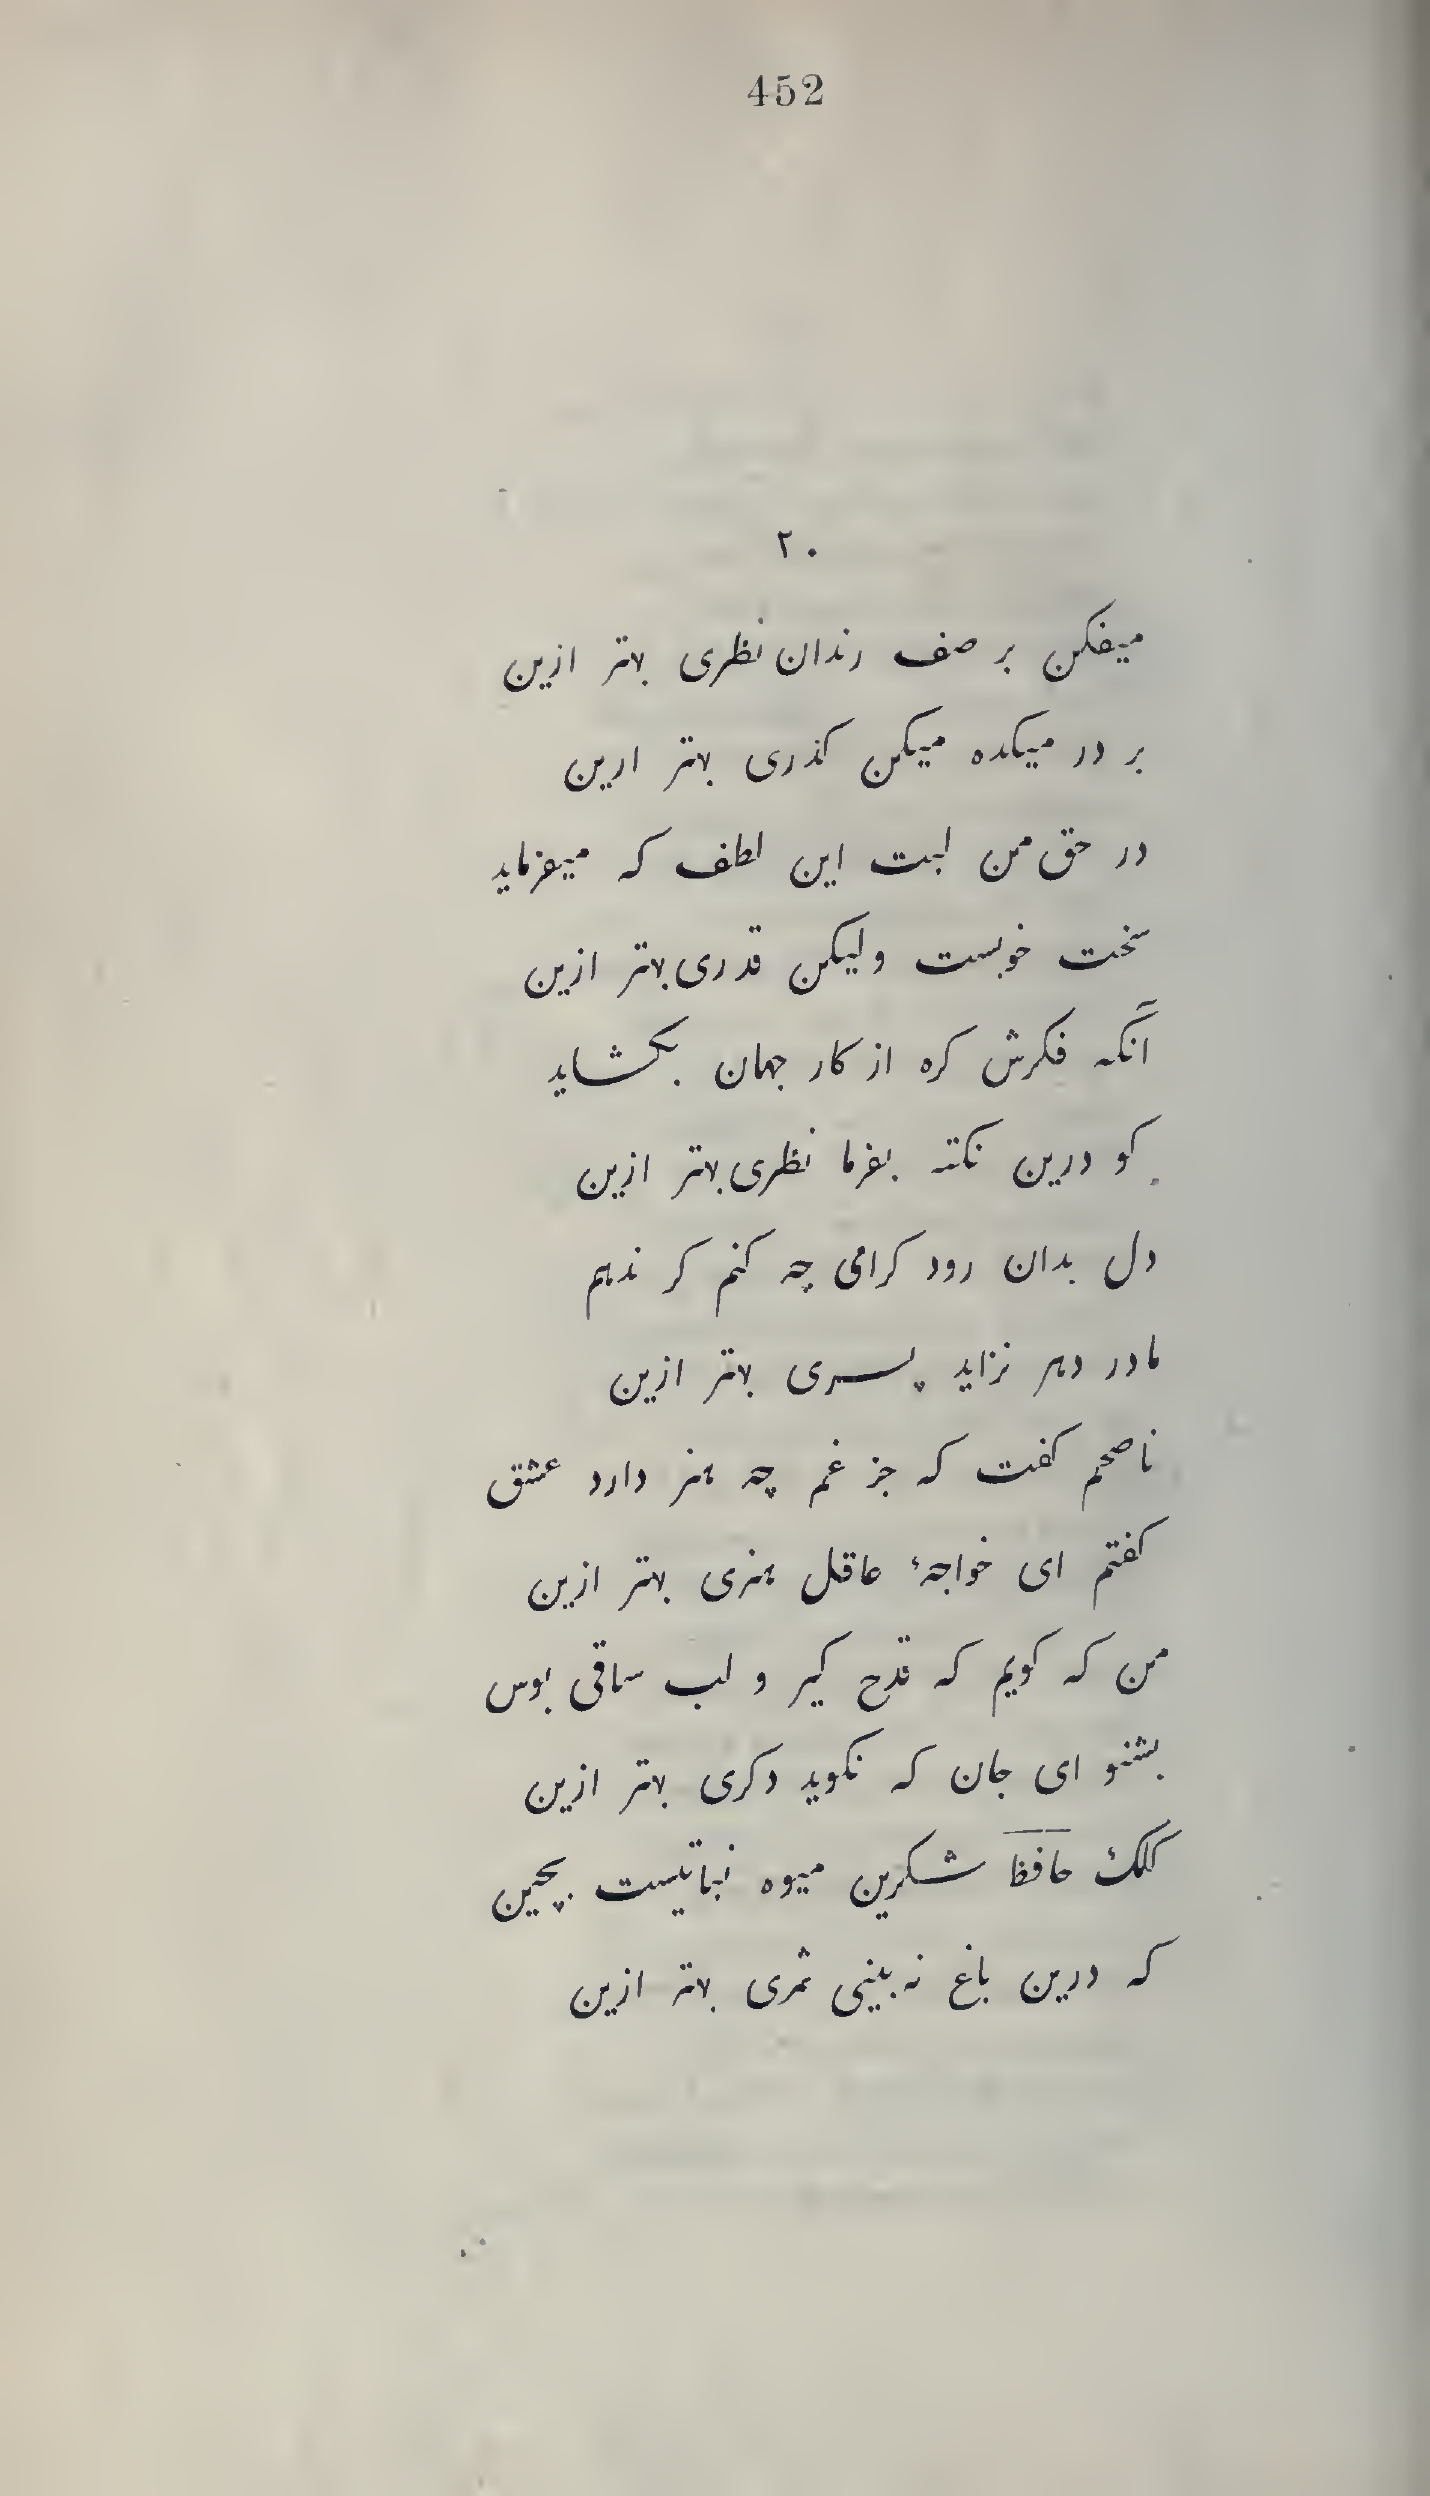 452
۲۰
میفکن بر صف رندان نظری بهتر ازین
بر در میکده میکن کذری بهتر ارین
در حق من لبت این لطف که میفرماید
سخت خوبست ولیکن قدری بهتر ازین
آنکه فکرش کره از کار جهان بکشاید
کو درین نکته بفرما نظری بهتر ازین
دل بدان رود کرامی چه کنم کر ندهم
مادر دهر نزاید پسری بهتر ازین
ناصحم کفت که جز غم چه هنر دارد عشق
کفتم ای خواجهٔ عاقل هنری بهتر ازین
من که کویم که قدح کیر و لب ساقی بوس
بشنو ای جان که نکوید دکری بهتر ازین
کلک حافظ شکرین میوه نباتیست بچین
که درین باغ نه بینی ثمری بهتر ازین